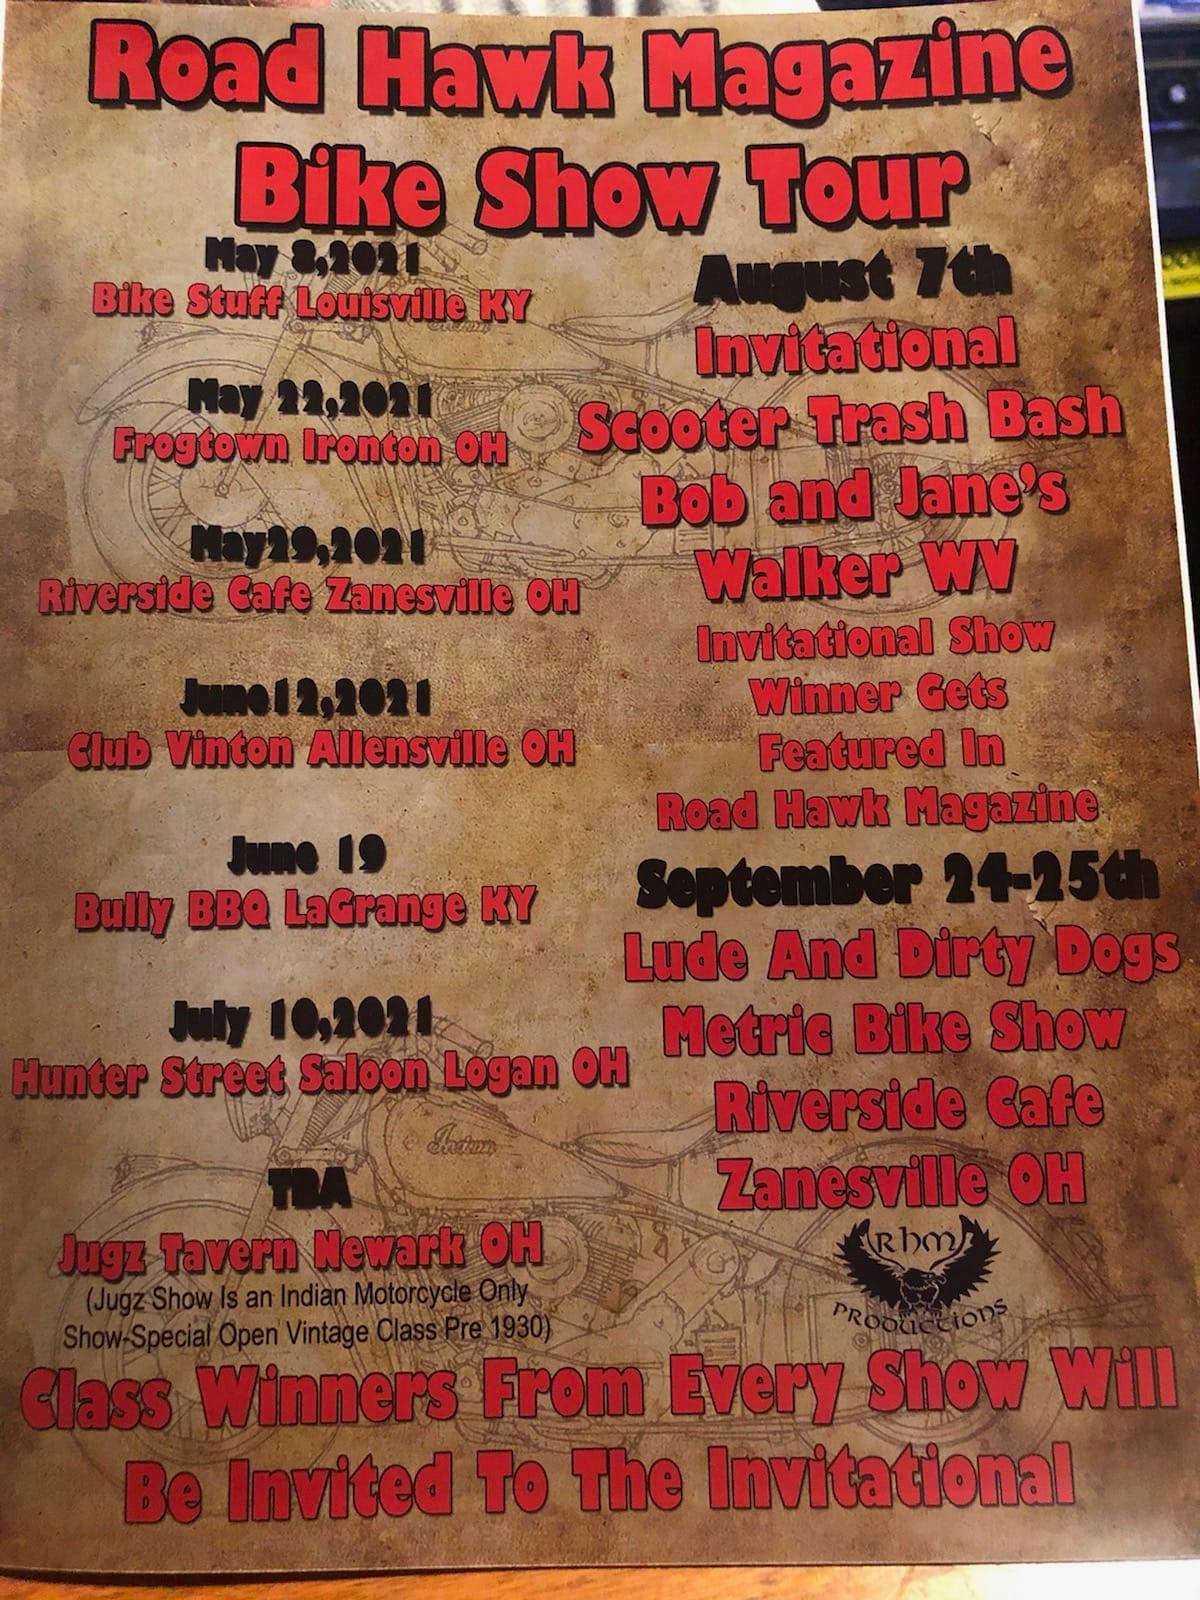 Road Hawk Magazine
Bike Show Tour
May 8,2021
Bike Stuff Louisville KY
May 22,2021
Frogtown Ironton OH
May29,2021
Riverside Cafe Zanesville OH
June12,2021
Club Vinton Allensville OH
June 19
Bully BBQ LaGrange KY
July 10,2021
Hunter Street Saloon Logan OH
TBA
Jugz Tavern Newark OH
(Jugz Show Is an Indian Motorcycle Only
Show-Special Open Vintage Class Pre 1930)
August 7th
Invitational
Scooter Trash Bash
Bob and Jane's
Walker WV
Invitational Show
Winner Gets
Featured In
Road Hawk Magazine
September 24-25th
Lude And Dirty Dogs
Metric Bike Show
Riverside Cafe
Zanesville OH
Indian
RHM
PRODUCTIONS
Class Winners From Every Show Will
Be Invited To The Invitational